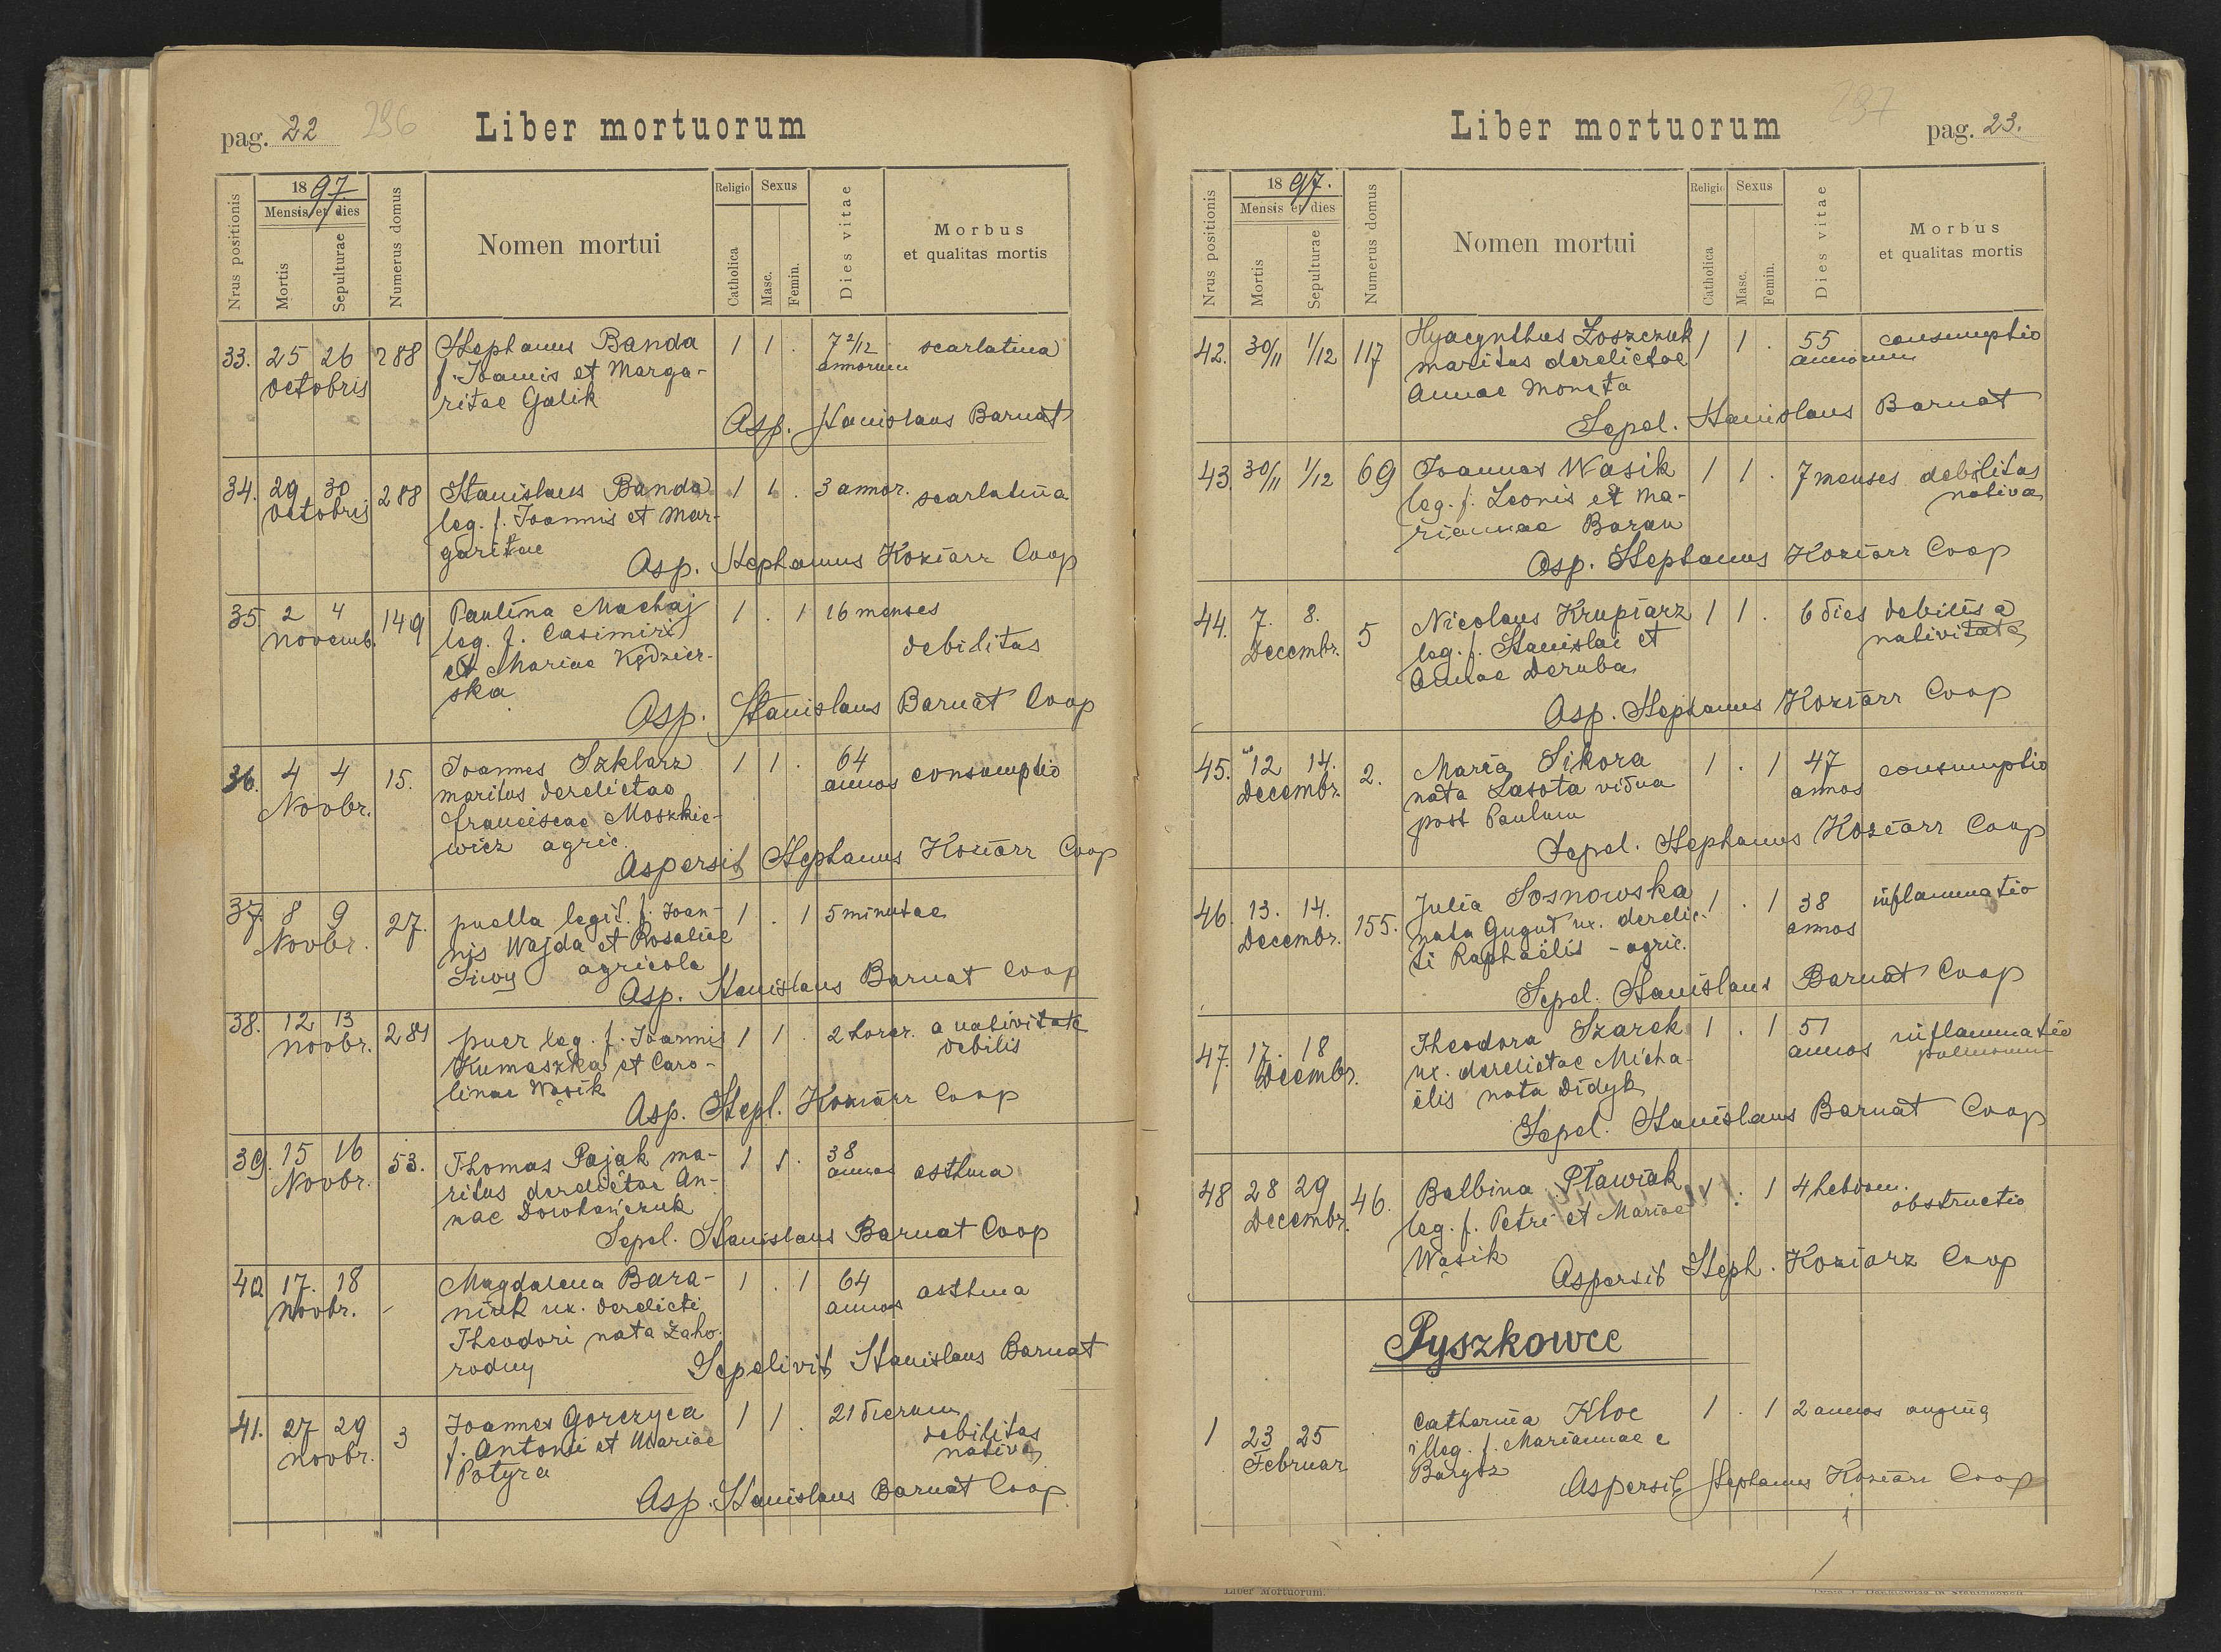 pag. 22 296 Liber mortuorum
Nrus positionis
1897.
Mensis et dies
Mortis
Sepulturae
Numerus domus
Nomen mortui
Religio
Catholica
Sexus
Masc.
Femin.
Dies vitae
Morbus
et qualitas mortis
33. 25 26 288 Stephanus Banda 1 1 . 7 2/12 scarlatina
octobris f. Joannis et Marga- annorum
ritae Galik
Asp. Stanislaus Barnat
34. 29 30 288 Stanislaus Banda 1 1 . 3 annor. scarlatina
octobris leg. f. Joannis et Mar-
garitae
Asp. Stephanus Koziarz Coop
35 2 4 149 Paulina Machaj 1 . 1 16 menses
novemb. leg. f. Casimiri debilitas
et Mariae Kędzier-
ska
Asp. Stanislaus Barnat Coop
36. 4 4 15. Joannes Szklarz 1 1 . 64
Novbr. maritus derelictae annos consumptio
Franciscae Moszkie-
wicz agric.
Aspersit Stephanus Koziarz Coop
37. 8 9 27. puella legit. f. Joan- 1 . 1 5 minutae
Novbr. nis Wajda et Rosaliae
Siwy agricola
Asp. Stanislaus Barnat Coop
38. 12 13 281 puer leg. f. Joannis 1 1 . 2 horar. a nativitate
novbr. Kumaszka et Caro- debilis
linae Wąsik
Asp. Steph. Koziarz Coop
39. 15 16 53. Thomas Pająk ma- 1 1 . 38
Novbr. ritus derelictae An- annos asthma
nae Dowhańczuk
Sepel. Stanislaus Barnat Coop
40 17. 18 - Magdalena Bara- 1 . 1 64
Novbr. niuk ux. derelicti annos asthma
Theodori nata Zaho-
rodny
Sepelivit Stanislaus Barnat
41. 27 29 3 Joannes Gorczyca 1 1 . 21 dierum
novbr. f. Antonii et Mariae debilitas
Potyra nativa
Asp. Stanislaus Barnat Coop
Liber mortuorum 297 pag. 23.
Nrus positionis
1897.
Mensis et dies
Mortis
Sepulturae
Numerus domus
Nomen mortui
Religio
Catholica
Sexus
Masc.
Femin.
Dies vitae
Morbus
et qualitas mortis
42. 30/11 1/12 117 Hyacynthus Łoszczuk 1 1 . 55 consumptio
maritus derelictae annorum
Annae Moneta
Sepel. Stanislaus Barnat
43. 30/11 1/12 69 Joannes Wasik 1 1 . 7 menses debilitas
leg. f. Leonis et Ma- nativa
riannae Baran
Asp. Stephanus Koziarz Coop
44. 7. 8. 5 Nicolaus Krupiarz 1 1 . 6 dies debilis a
Decembr. leg. f. Stanislai et nativitate
Annae Deruba
Asp. Stephanus Koziarz Coop
45. 12 14. 2. Maria Sikora 1 . 1 47 consumptio
Decembr. nata Lasota vidua annos
post Paulum
Sepel. Stephanus Koziarz Coop
46. 13. 14. 155. Julia Sosnowska 1 . 1 38 inflammatio
Decembr. nata Gugut ux. derelic- annos
ti Raphaëlis - agric.
Sepel. Stanislaus Barnat Coop
47. 17. 18 Theodora Szarek 1 . 1 51 inflammatio
Decembr. ux. derelictae Micha- annos pulmonum
ëlis nata Didyk
Sepel. Stanislaus Barnat Coop
48 28 29 46. Balbina Pławiak 1 . 1 4 hebdom.
Decembr. leg. f. Petri et Mariae obstructio
Wąsik
Aspersit Steph. Koziarz Coop
Pyszkowce
1 23 25 Catharina Kloc 1 . 1 2 annos angina
Februar illeg. f. Mariannae e
Barysz
Aspersit Stephanus Koziarz Coop
Liber Mortuorum.